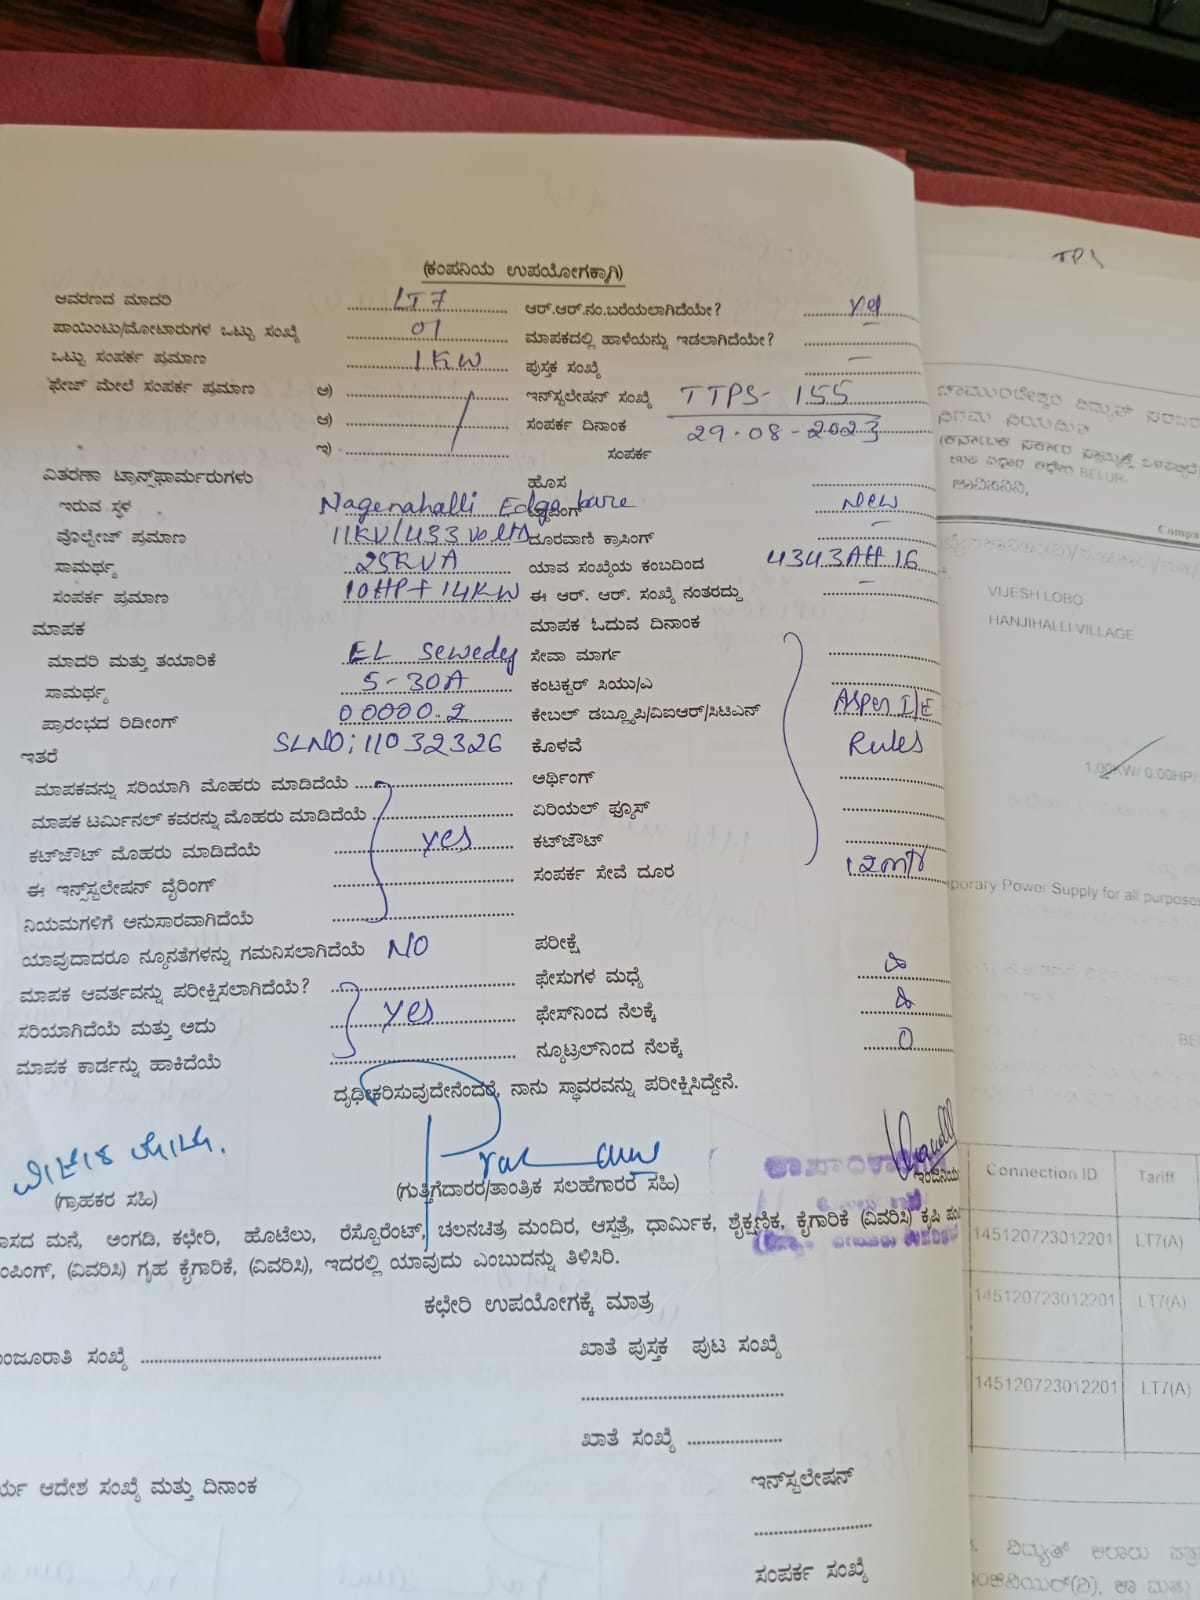 TPS
(ಕಂಪನಿಯ ಉಪಯೋಗಕ್ಕಾಗಿ)
ಆವರಣದ ಮಾದರಿ LT7 ಆರ್.ಆರ್.ನಂ.ಬರೆಯಲಾಗಿದೆಯೇ? yes
ಪಾಯಿಂಟು/ಮೋಟಾರುಗಳ ಒಟ್ಟು ಸಂಖ್ಯೆ 01 ಮಾಪಕದಲ್ಲಿ ಹಾಳೆಯನ್ನು ಇಡಲಾಗಿದೆಯೇ?
ಒಟ್ಟು ಸಂಪರ್ಕ ಪ್ರಮಾಣ 1KW ಪುಸ್ತಕ ಸಂಖ್ಯೆ —
ಫೇಜ್ ಮೇಲೆ ಸಂಪರ್ಕ ಪ್ರಮಾಣ ಅ) ಇನ್‌ಸ್ಟಲೇಷನ್ ಸಂಖ್ಯೆ TTPS- 155
ಆ) ಸಂಪರ್ಕ ದಿನಾಂಕ 29-08-2023
ಇ) ಸಂಪರ್ಕ
ವಿತರಣಾ ಟ್ರಾನ್ಸ್‌ಫಾರ್ಮರುಗಳು ಹೊಸ
ಇರುವ ಸ್ಥಳ Nagenahalli New
ವೊಲ್ಟೇಜ್ ಪ್ರಮಾಣ 11KV/433 volts ದೂರವಾಣಿ ಕ್ರಾಸಿಂಗ್ —
ಸಾಮರ್ಥ್ಯ 25KVA ಯಾವ ಸಂಖ್ಯೆಯ ಕಂಬದಿಂದ 4343AH16
ಸಂಪರ್ಕ ಪ್ರಮಾಣ 10HP+14KW ಈ ಆರ್. ಆರ್. ಸಂಖ್ಯೆ ನಂತರದ್ದು —
ಮಾಪಕ ಮಾಪಕ ಓದುವ ದಿನಾಂಕ
ಮಾದರಿ ಮತ್ತು ತಯಾರಿಕೆ EL sewedy ಸೇವಾ ಮಾರ್ಗ
ಸಾಮರ್ಥ್ಯ 5-30A ಕಂಟಕ್ಟರ್ ಸಿಯು/ಎ
ಪ್ರಾರಂಭದ ರಿಡೀಂಗ್ 00000.2 ಕೇಬಲ್ ಡಬ್ಲ್ಯೂಪಿ/ವಿಐಆರ್/ಸಿಟಿಎನ್ Asper I/E
ಇತರೆ SLNO; 11032326 ಕೊಳವೆ Rules
ಮಾಪಕವನ್ನು ಸರಿಯಾಗಿ ಮೊಹರು ಮಾಡಿದೆಯೆ ಅರ್ಥಿಂಗ್
ಮಾಪಕ ಟರ್ಮಿನಲ್ ಕವರನ್ನು ಮೊಹರು ಮಾಡಿದೆಯೆ ಏರಿಯಲ್ ಫ್ಯೂಸ್
ಕಟ್‌ಜೌಟ್ ಮೊಹರು ಮಾಡಿದೆಯೆ yes ಕಟ್‌ಜೌಟ್
ಈ ಇನ್ಸ್‌ಟಲೇಷನ್ ವೈರಿಂಗ್ ಸಂಪರ್ಕ ಸೇವೆ ದೂರ 12mtr
ನಿಯಮಗಳಿಗೆ ಅನುಸಾರವಾಗಿದೆಯೆ
ಯಾವುದಾದರೂ ನ್ಯೂನತೆಗಳನ್ನು ಗಮನಿಸಲಾಗಿದೆಯೆ NO ಪರೀಕ್ಷೆ
ಮಾಪಕ ಆವರ್ತವನ್ನು ಪರೀಕ್ಷಿಸಲಾಗಿದೆಯೆ? ಫೇಸುಗಳ ಮಧ್ಯೆ
ಸರಿಯಾಗಿದೆಯೆ ಮತ್ತು ಅದು yes ಫೇಸ್‌ನಿಂದ ನೆಲಕ್ಕೆ
ಮಾಪಕ ಕಾರ್ಡನ್ನು ಹಾಕಿದೆಯೆ ನ್ಯೂಟ್ರಲ್‌ನಿಂದ ನೆಲಕ್ಕೆ 0
ದೃಢೀಕರಿಸುವುದೇನೆಂದರೆ, ನಾನು ಸ್ಥಾವರವನ್ನು ಪರೀಕ್ಷಿಸಿದ್ದೇನೆ.
(ಗ್ರಾಹಕರ ಸಹಿ) (ಗುತ್ತಿಗೆದಾರರ/ತಾಂತ್ರಿಕ ಸಲಹೆಗಾರರ ಸಹಿ)
ಮನೆ, ಅಂಗಡಿ, ಕಛೇರಿ, ಹೊಟೆಲು, ರೆಸ್ಟೊರೆಂಟ್, ಚಲನಚಿತ್ರ ಮಂದಿರ, ಆಸ್ಪತ್ರೆ, ಧಾರ್ಮಿಕ, ಶೈಕ್ಷಣಿಕ, ಕೈಗಾರಿಕೆ (ವಿವರಿಸಿ) ಕೃಷಿ
(ವಿವರಿಸಿ) ಗೃಹ ಕೈಗಾರಿಕೆ, (ವಿವರಿಸಿ), ಇದರಲ್ಲಿ ಯಾವುದು ಎಂಬುದನ್ನು ತಿಳಿಸಿರಿ.
ಕಛೇರಿ ಉಪಯೋಗಕ್ಕೆ ಮಾತ್ರ
ಸಂಖ್ಯೆ ಖಾತೆ ಪುಸ್ತಕ ಪುಟ ಸಂಖ್ಯೆ
ಖಾತೆ ಸಂಖ್ಯೆ
ಆದೇಶ ಸಂಖ್ಯೆ ಮತ್ತು ದಿನಾಂಕ ಇನ್‌ಸ್ಟಲೇಷನ್
ಸಂಪರ್ಕ ಸಂಖ್ಯೆ
BELUR
VIJESH LOBO
HANJIHALLI VILLAGE
1.00KW/ 0.00HP
Power Supply for all purposes
Connection ID Tariff
145120723012201 LT7(A)
145120723012201 LT7(A)
145120723012201 LT7(A)